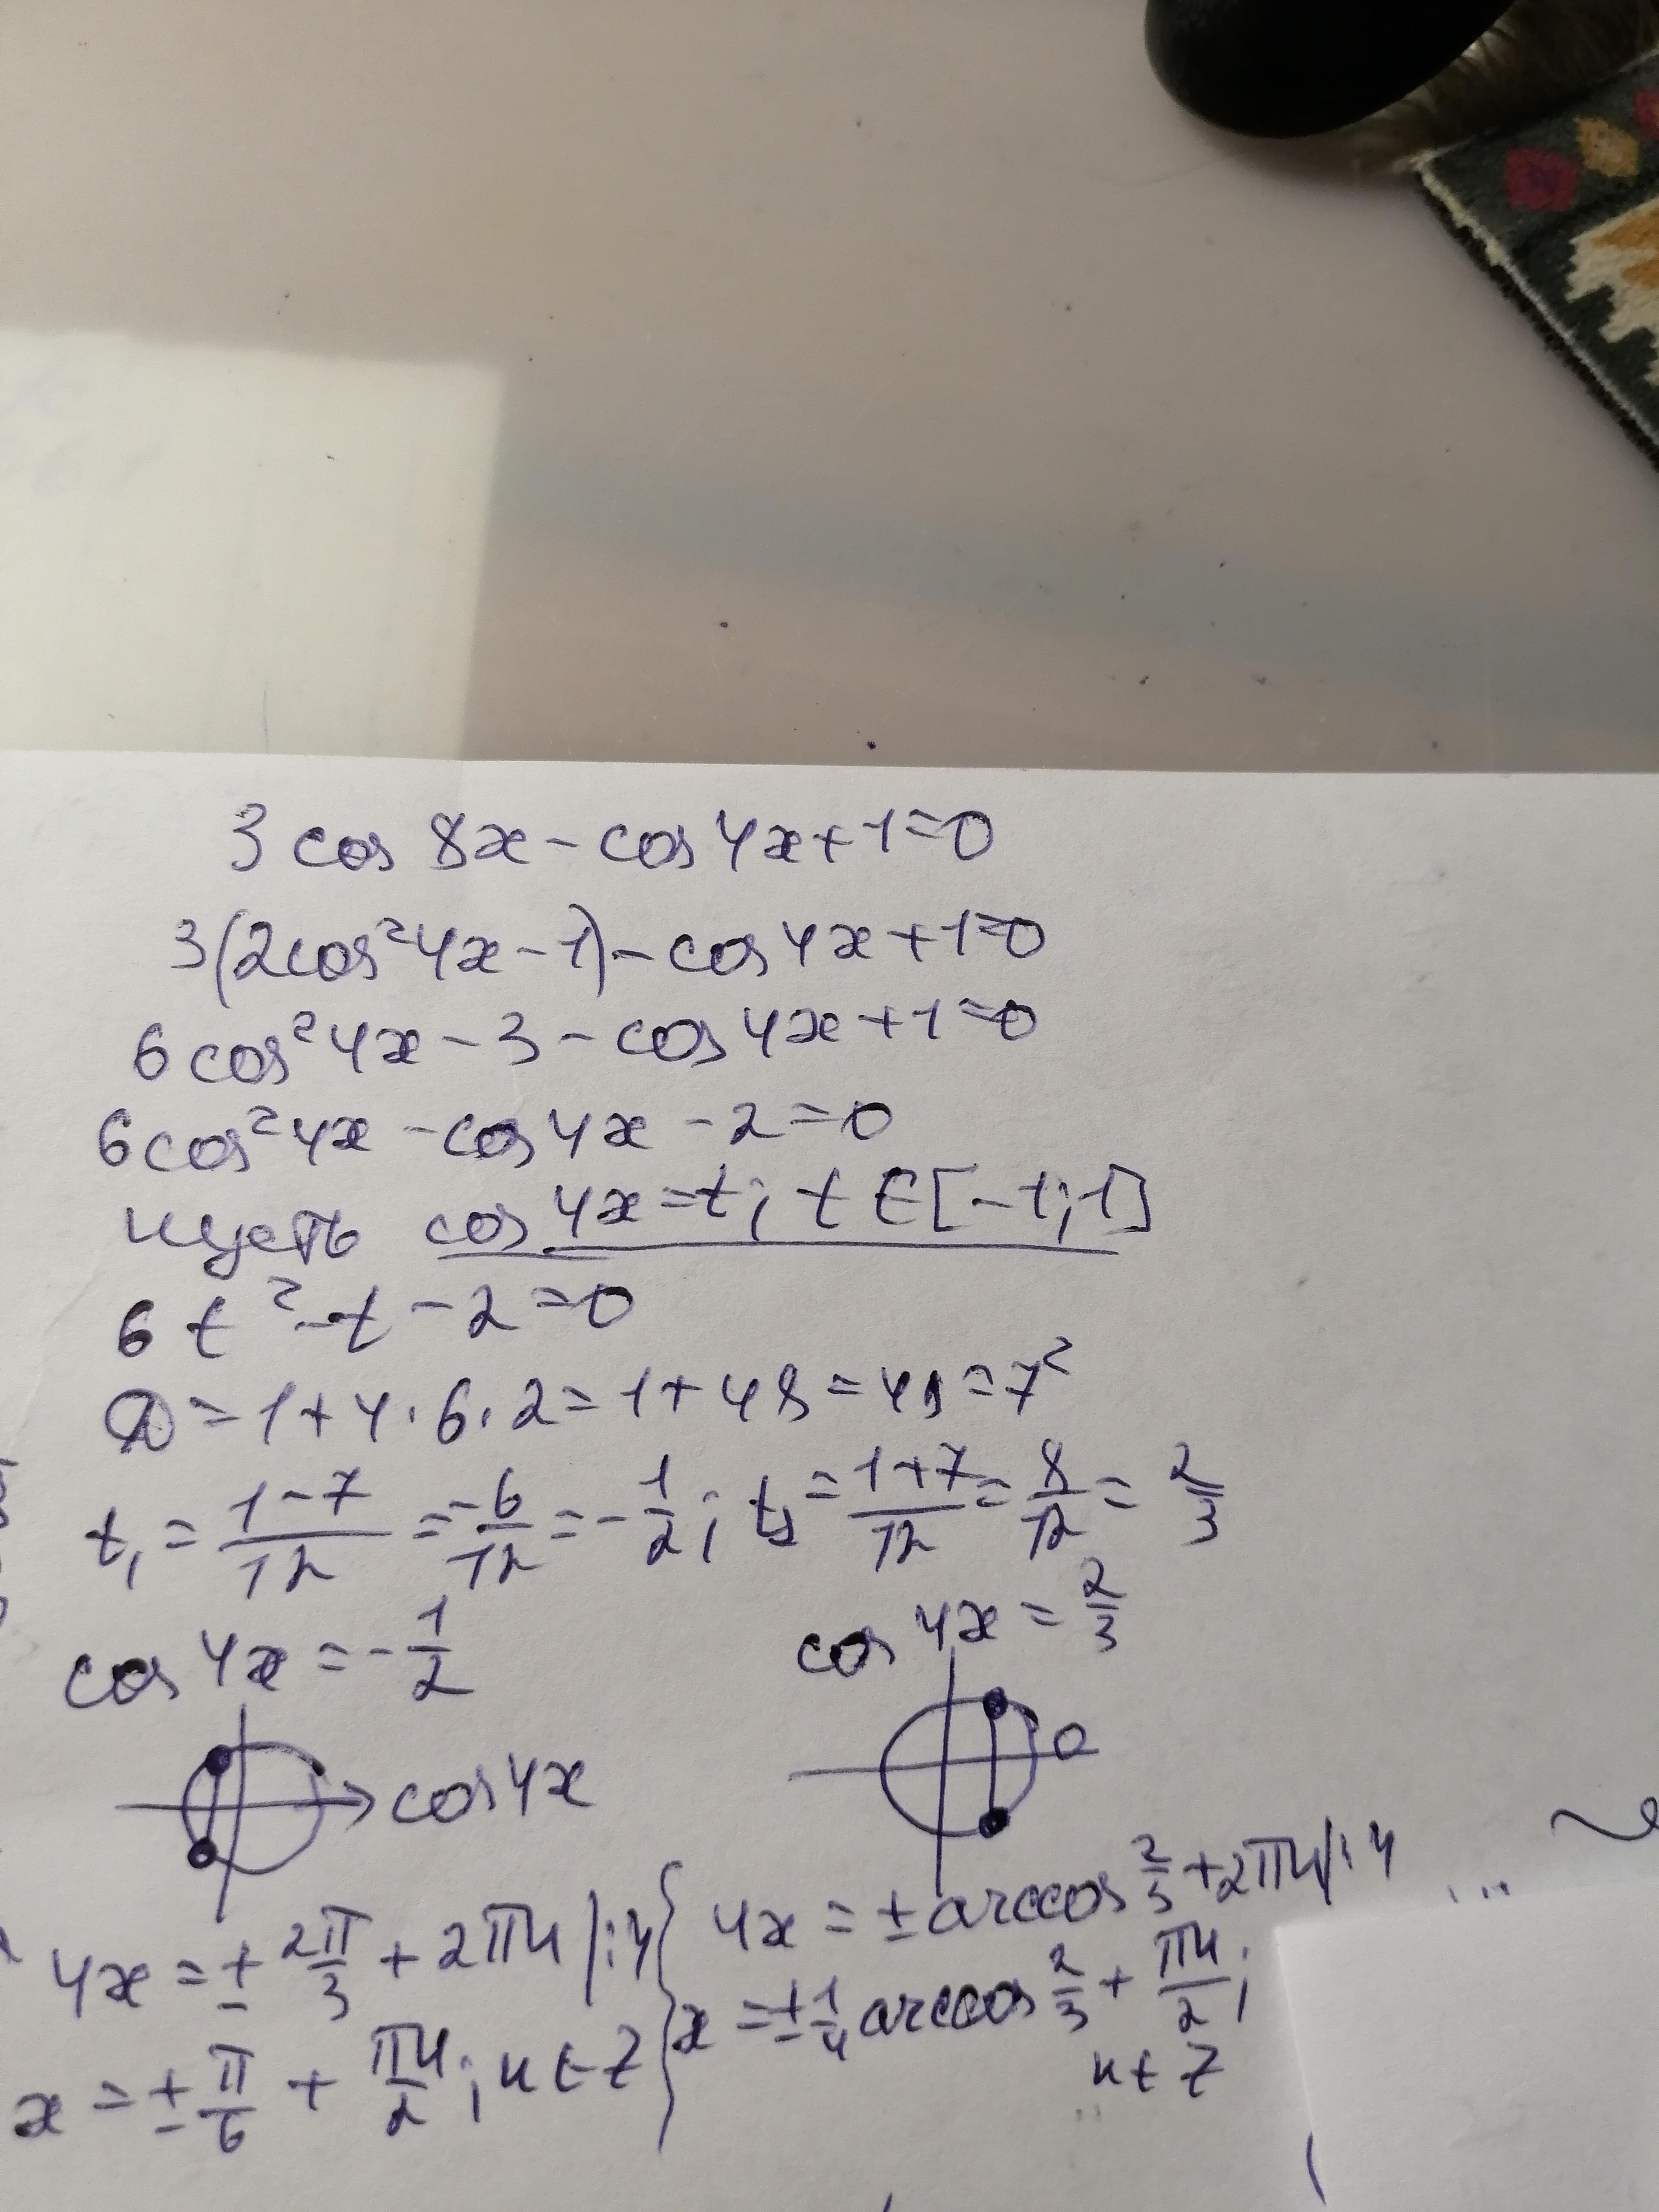 3 cos 8x - cos 4x + 1 = 0
3(2cos²4x - 1) - cos 4x + 1 = 0
6 cos²4x - 3 - cos 4x + 1 = 0
6cos²4x - cos 4x - 2 = 0
пусть cos 4x = t; t ∈ [-1; 1]
6t² - t - 2 = 0
D = 1 + 4 · 6 · 2 = 1 + 48 = 49 = 7²
t₁ = (1-7)/12 = -6/12 = -1/2; t₂ = (1+7)/12 = 8/12 = 2/3
cos 4x = -1/2
cos 4x
4x = ± 2π/3 + 2πn |:4
x = ± π/6 + πn/2; n ∈ Z
cos 4x = 2/3
4x = ± arccos 2/3 + 2πn |:4
x = ± 1/4 arccos 2/3 + πn/2;
n ∈ Z